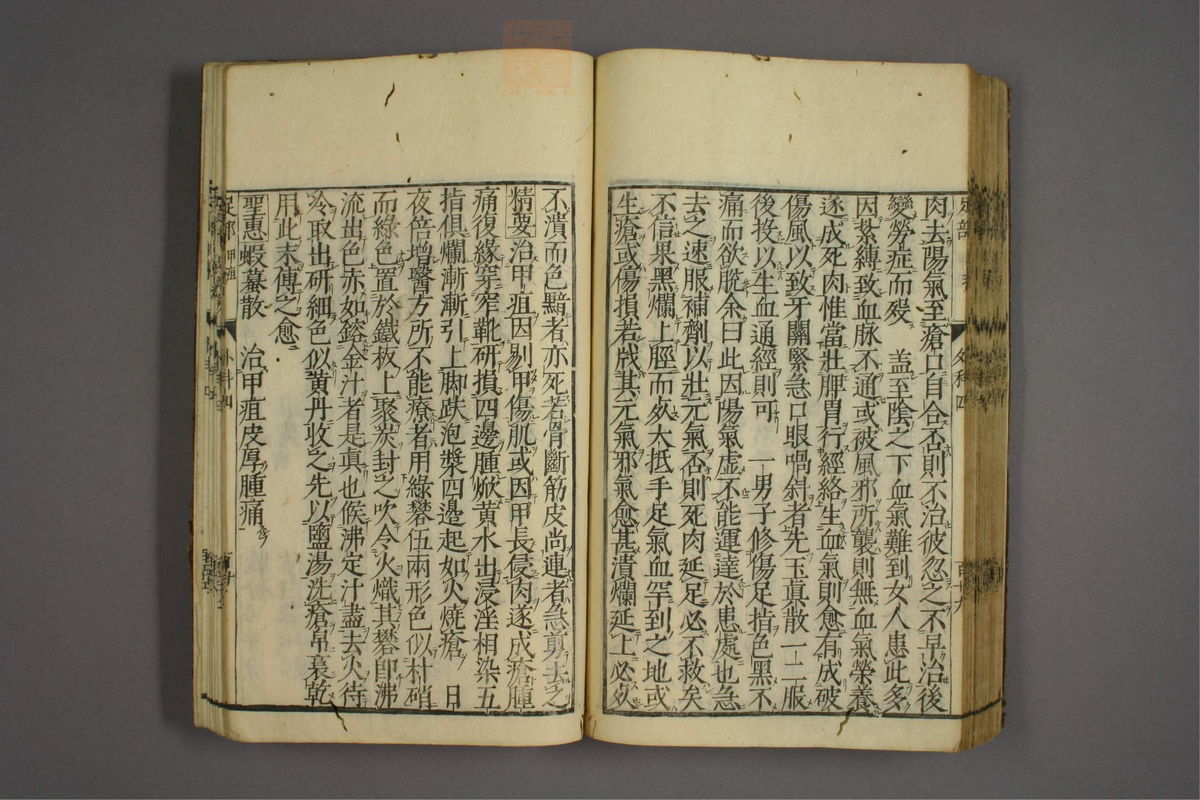 肉去陽氣至瘡口自合否則不治彼忽之不早治後
變勞症而歿　蓋至陰之下血氣難到女人患此多
因紮縛致血脉不通或被風邪所襲則無血氣榮養
遂成死肉惟當壯脾胃行經絡生血氣則愈有成破
傷風以致牙關緊急口眼喎斜者先玉眞散一二服
後投以生血通經則可　一男子修傷足指色黑不
痛而欲脫余曰此因陽氣虛不能運達於患處也急
去之速服補劑以壯元氣否則死肉延足必不救矣
不信果黑爛上脛而歿大抵手足氣血罕到之地或
生瘡或傷損若戕其元氣邪氣愈甚潰爛延上必歿
不潰而色黯者亦死若骨斷筋皮尚連者急剪去之
精要治甲疽因剔甲傷肌或因甲長侵肉遂成瘡腫
痛復緣穿窄靴研損四邊腫焮黃水出浸淫相染五
指俱爛漸漸引上脚趺泡漿四邊起如火燒瘡　日
夜倍增醫方所不能療者用綠礬伍兩形色似朴硝
而綠色置於鐵板上聚炭封之吹令火熾其礬卽沸
流出色赤如鎔金汁者是眞也候沸定汁盡去火待
冷取出研細色似黃丹收之先以鹽湯洗瘡帛裛乾
用此末傅之愈
聖惠蝦蟇散　治甲疽皮厚腫痛
足部　甲疽　外科四